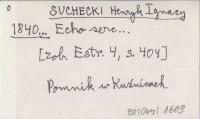 SUCHECKI Henryk Ignacy
1840... Echo serc...
[zob. Estr. 4, s. 404]
Pomnik w Kuźnicach.